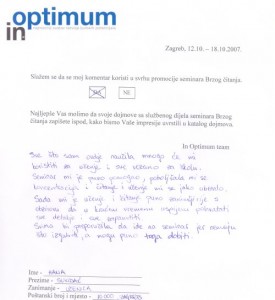 in optimum
Zagreb, 12.10. – 18.10.2007.
Slažem se da se moj komentar koristi u svrhu promocije seminara Brzog čitanja.
DA NE
Najljepše Vas molimo da svoje dojmove sa službenog dijela seminara Brzog
čitanja napišete ispod, kako bismo Vaše impresije uvrstili u katalog dojmova.
In Optimum team
Sve što sam ovdje naučila mnogo će mi
koristiti za učenje i sve vezano za školu.
Seminar mi je puno pomogao, poboljšala mi se
koncentracija i čitanje i učenje mi se jako ubrzalo.
Sada mi je učenje i čitanje puno zanimljivije s
obzirom da u kratkom vremenu uspijem pohvatati
sve detalje i sve zapamtiti.
Svima bi preporučila da idu na seminar jer nemaju
što izgubiti, a mogu puno toga dobiti.
Ime - HANA
Prezime -
Zanimanje - UČENICA
Poštanski broj i mjesto - 10 000 ZAGREB